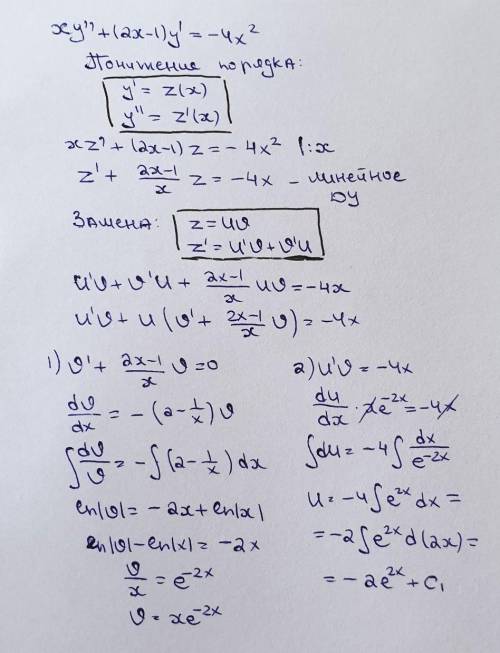 xy'' + (2x-1)y' = -4x²
Понижение порядка:
y' = z(x)
y'' = z'(x)
xz' + (2x-1)z = -4x² |:x
z' + (2x-1)/x z = -4x - линейное ДУ
Замена: z = uv
z' = u'v + v'u
u'v + v'u + (2x-1)/x uv = -4x
u'v + u(v' + (2x-1)/x v) = -4x
1) v' + (2x-1)/x v = 0
dv/dx = -(2 - 1/x)v
∫dv/v = -∫(2 - 1/x)dx
ln|v| = -2x + ln|x|
ln|v| - ln|x| = -2x
v/x = e^(-2x)
v = xe^(-2x)
2) u'v = -4x
du/dx · xe^(-2x) = -4x
∫du = -4∫dx/e^(-2x)
u = -4∫e^(2x) dx =
= -2∫e^(2x) d(2x) =
= -2e^(2x) + C₁